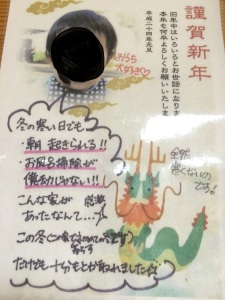 謹賀新年
旧年中はいろいろとお世話になりました
本年も何卒よろしくお願いいたします
平成二十四年元旦
おうち
大好き♡
冬の寒い日でも
朝起きられる!!
お風呂掃除が
億劫じゃない!!
こんな家が
あったなんて…
この冬
だけでも十分もとが取れました
全然
寒くないの
です!